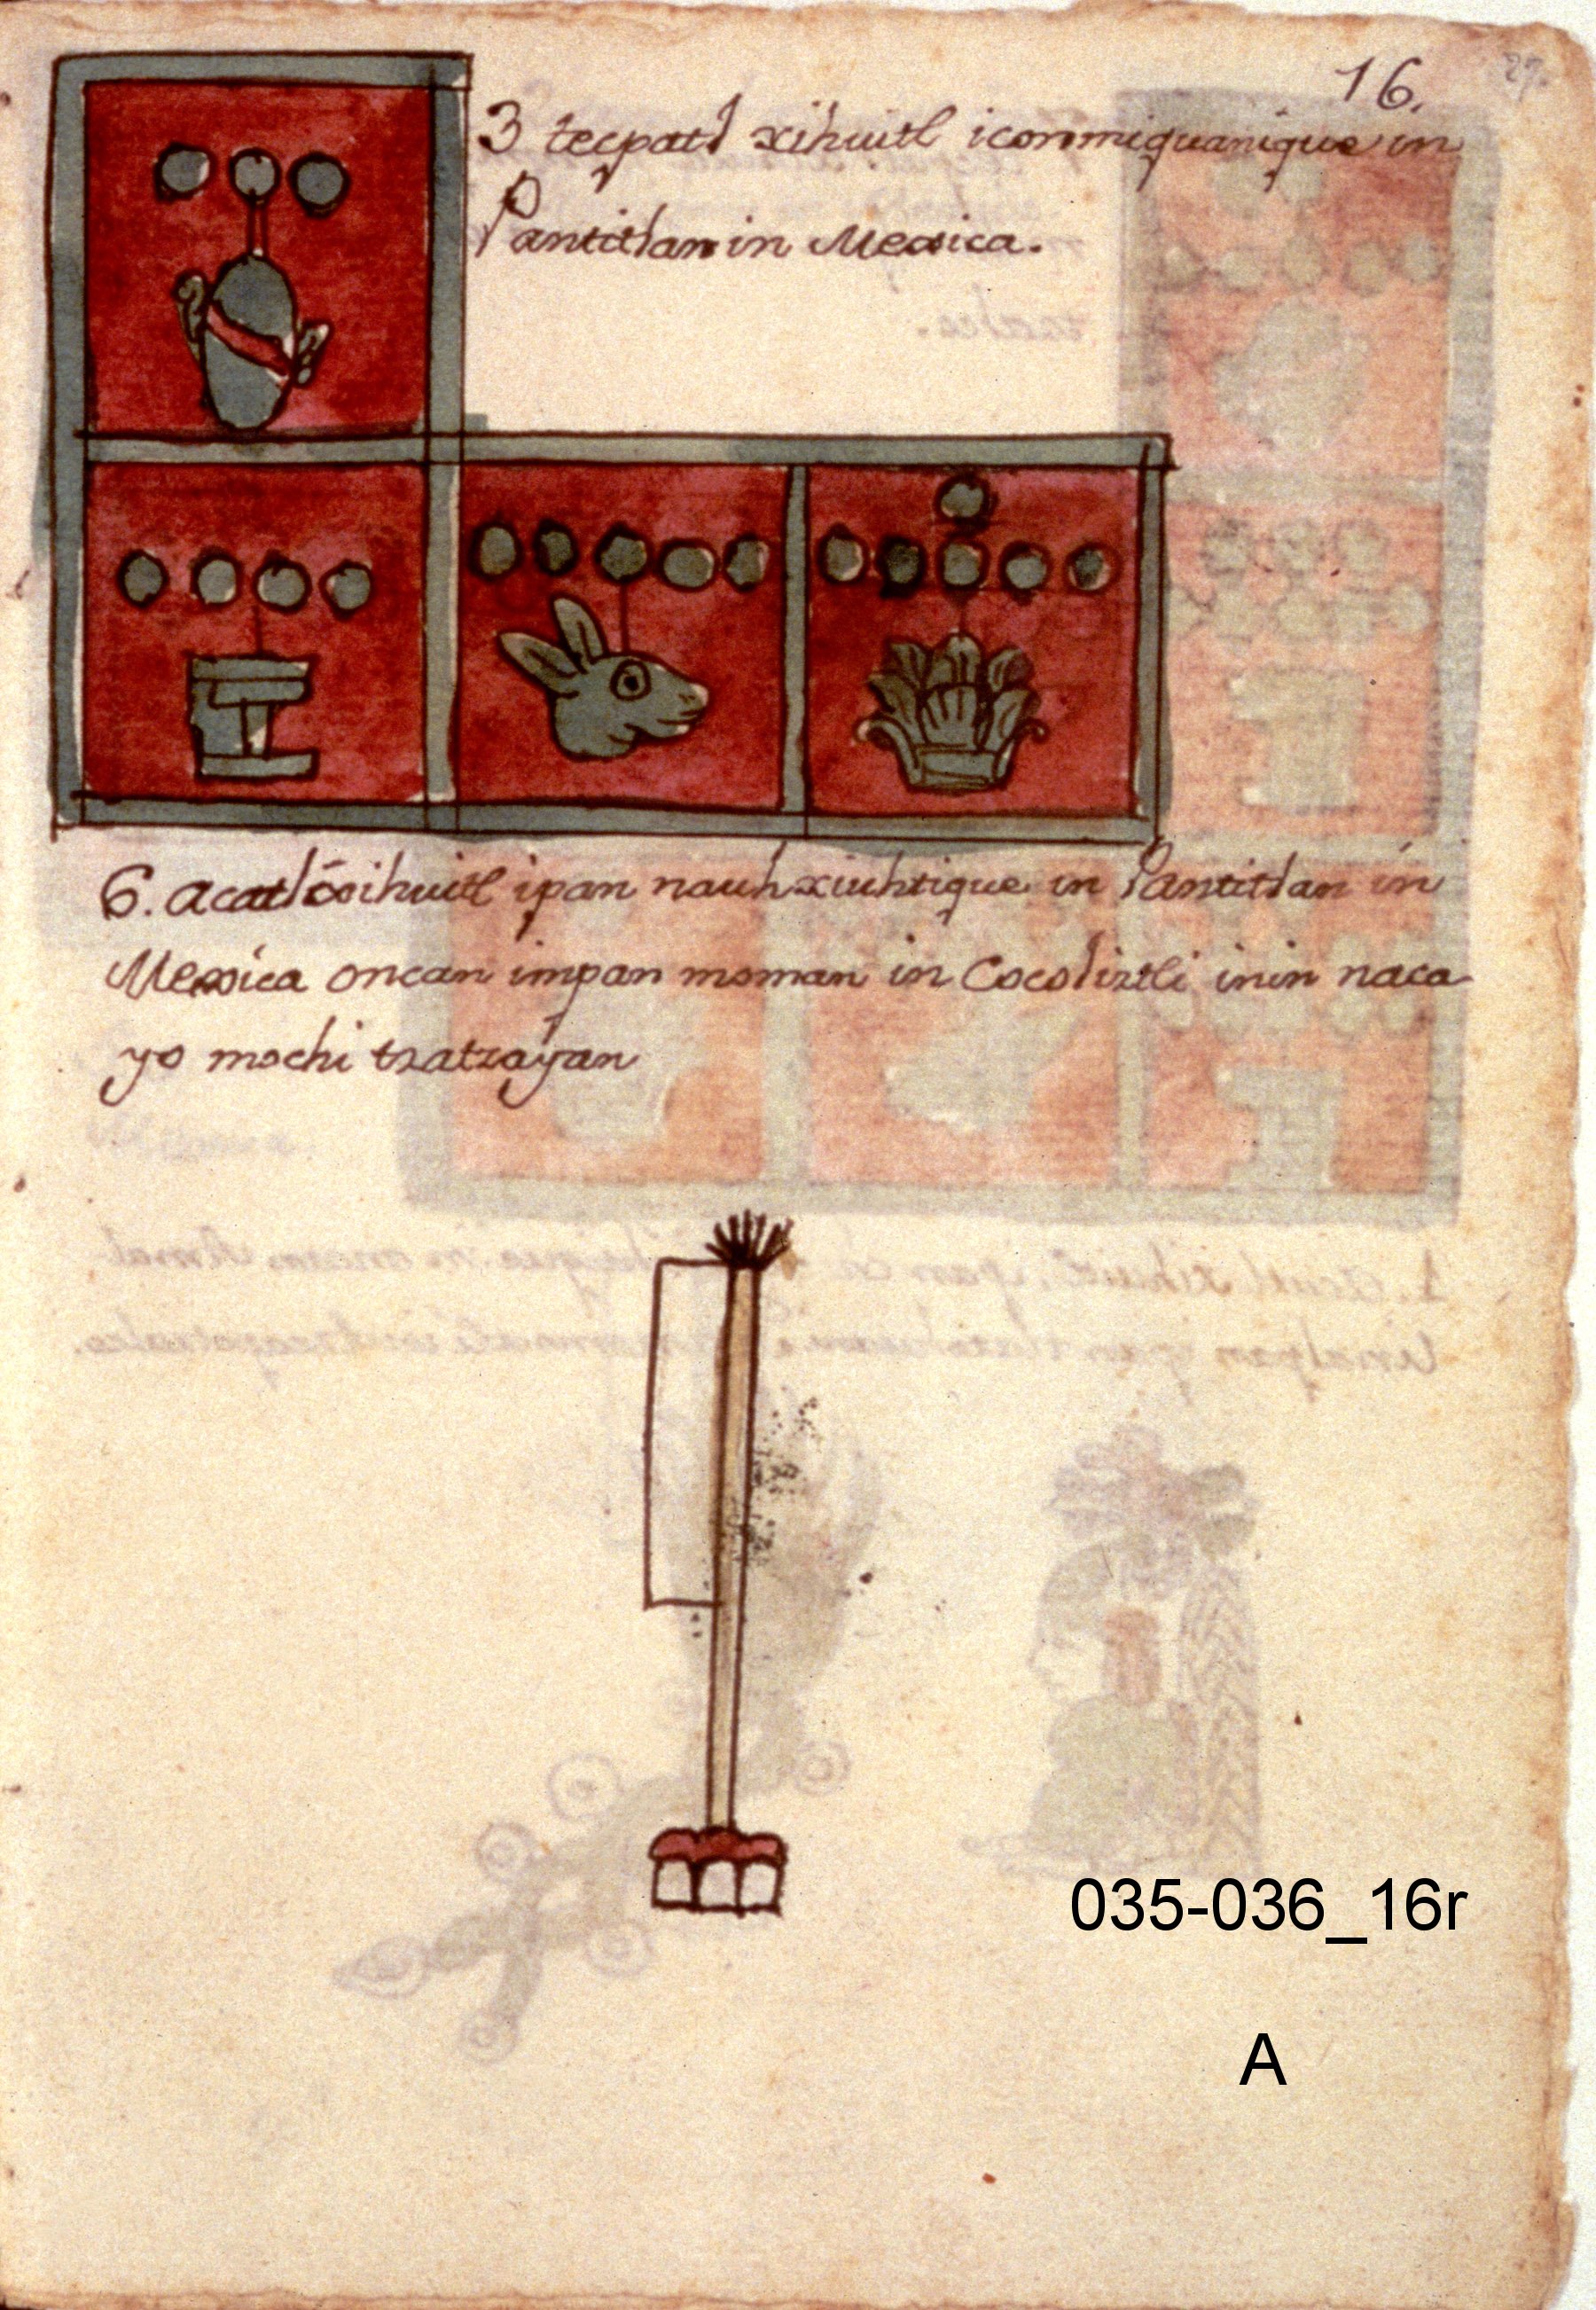 16.
27.
3 tecpatl xihuitl iconmiquanique in
Pantitlan in Mexica.
6. acatl xihuitl ipan nauhxiuhtique in Pantitlan in
Mexica oncan impan moman in Cocoliztli inin naca
yo mochi tzatzayan
035-036_16r
A